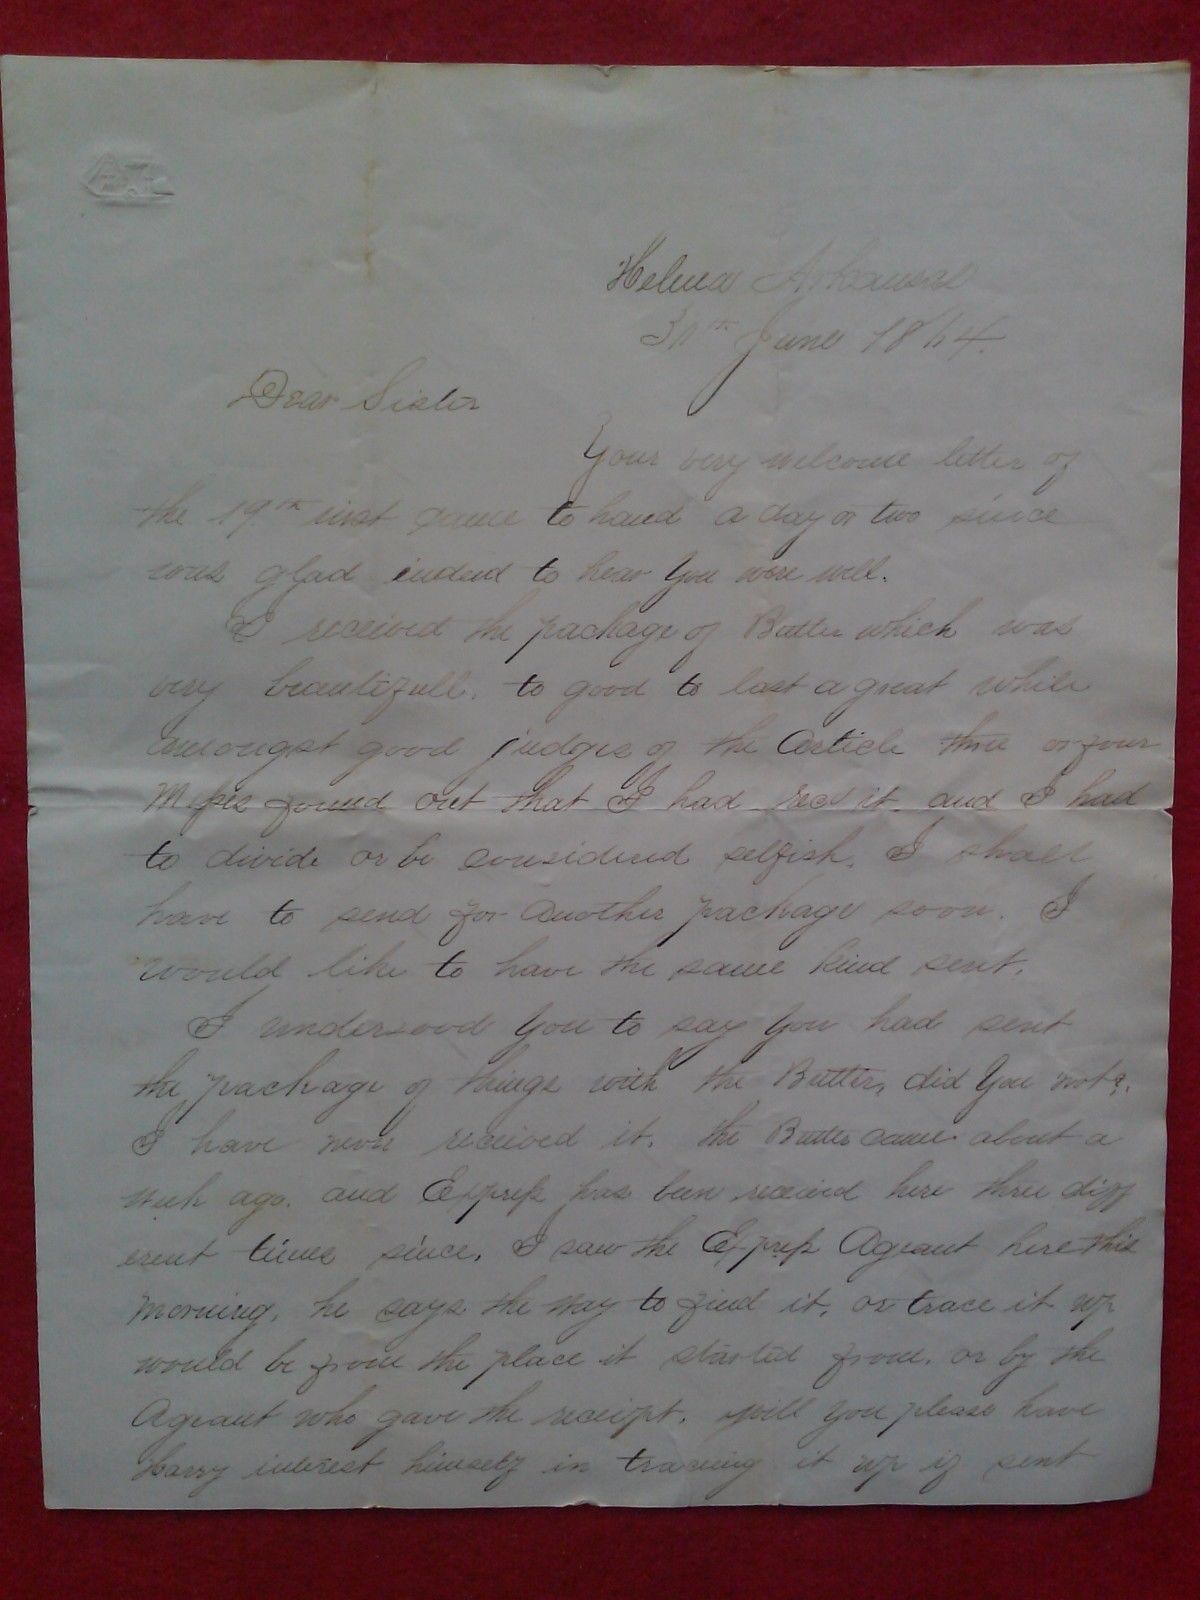 Helena Arkansas
30th June 1864.
Dear Sister
Your very welcome letter of
the 19th inst came to hand a day or two since
was glad indeed to hear You were well.
I received the package of Butter which was
very beautifull. to good to last a great while
amongst good judges of the Article three or four
Messes found out that I had recd it. and I had
to divide or be considered selfish. I shall
have to send for Another package soon. I
would like to have the same kind sent.
I undersood You to say You had sent
the package of things with the Butter, did You not?.
I have never received it. the Butter came about a
week ago. and Express has been received here three diff
erent times since. I saw the Express Ageant here this
Morning. he says the way to find it. or trace it up
would be from the place it started from. or by the
Ageant who gave the receipt. will you please have
Harry interest himself in tracing it up if sent